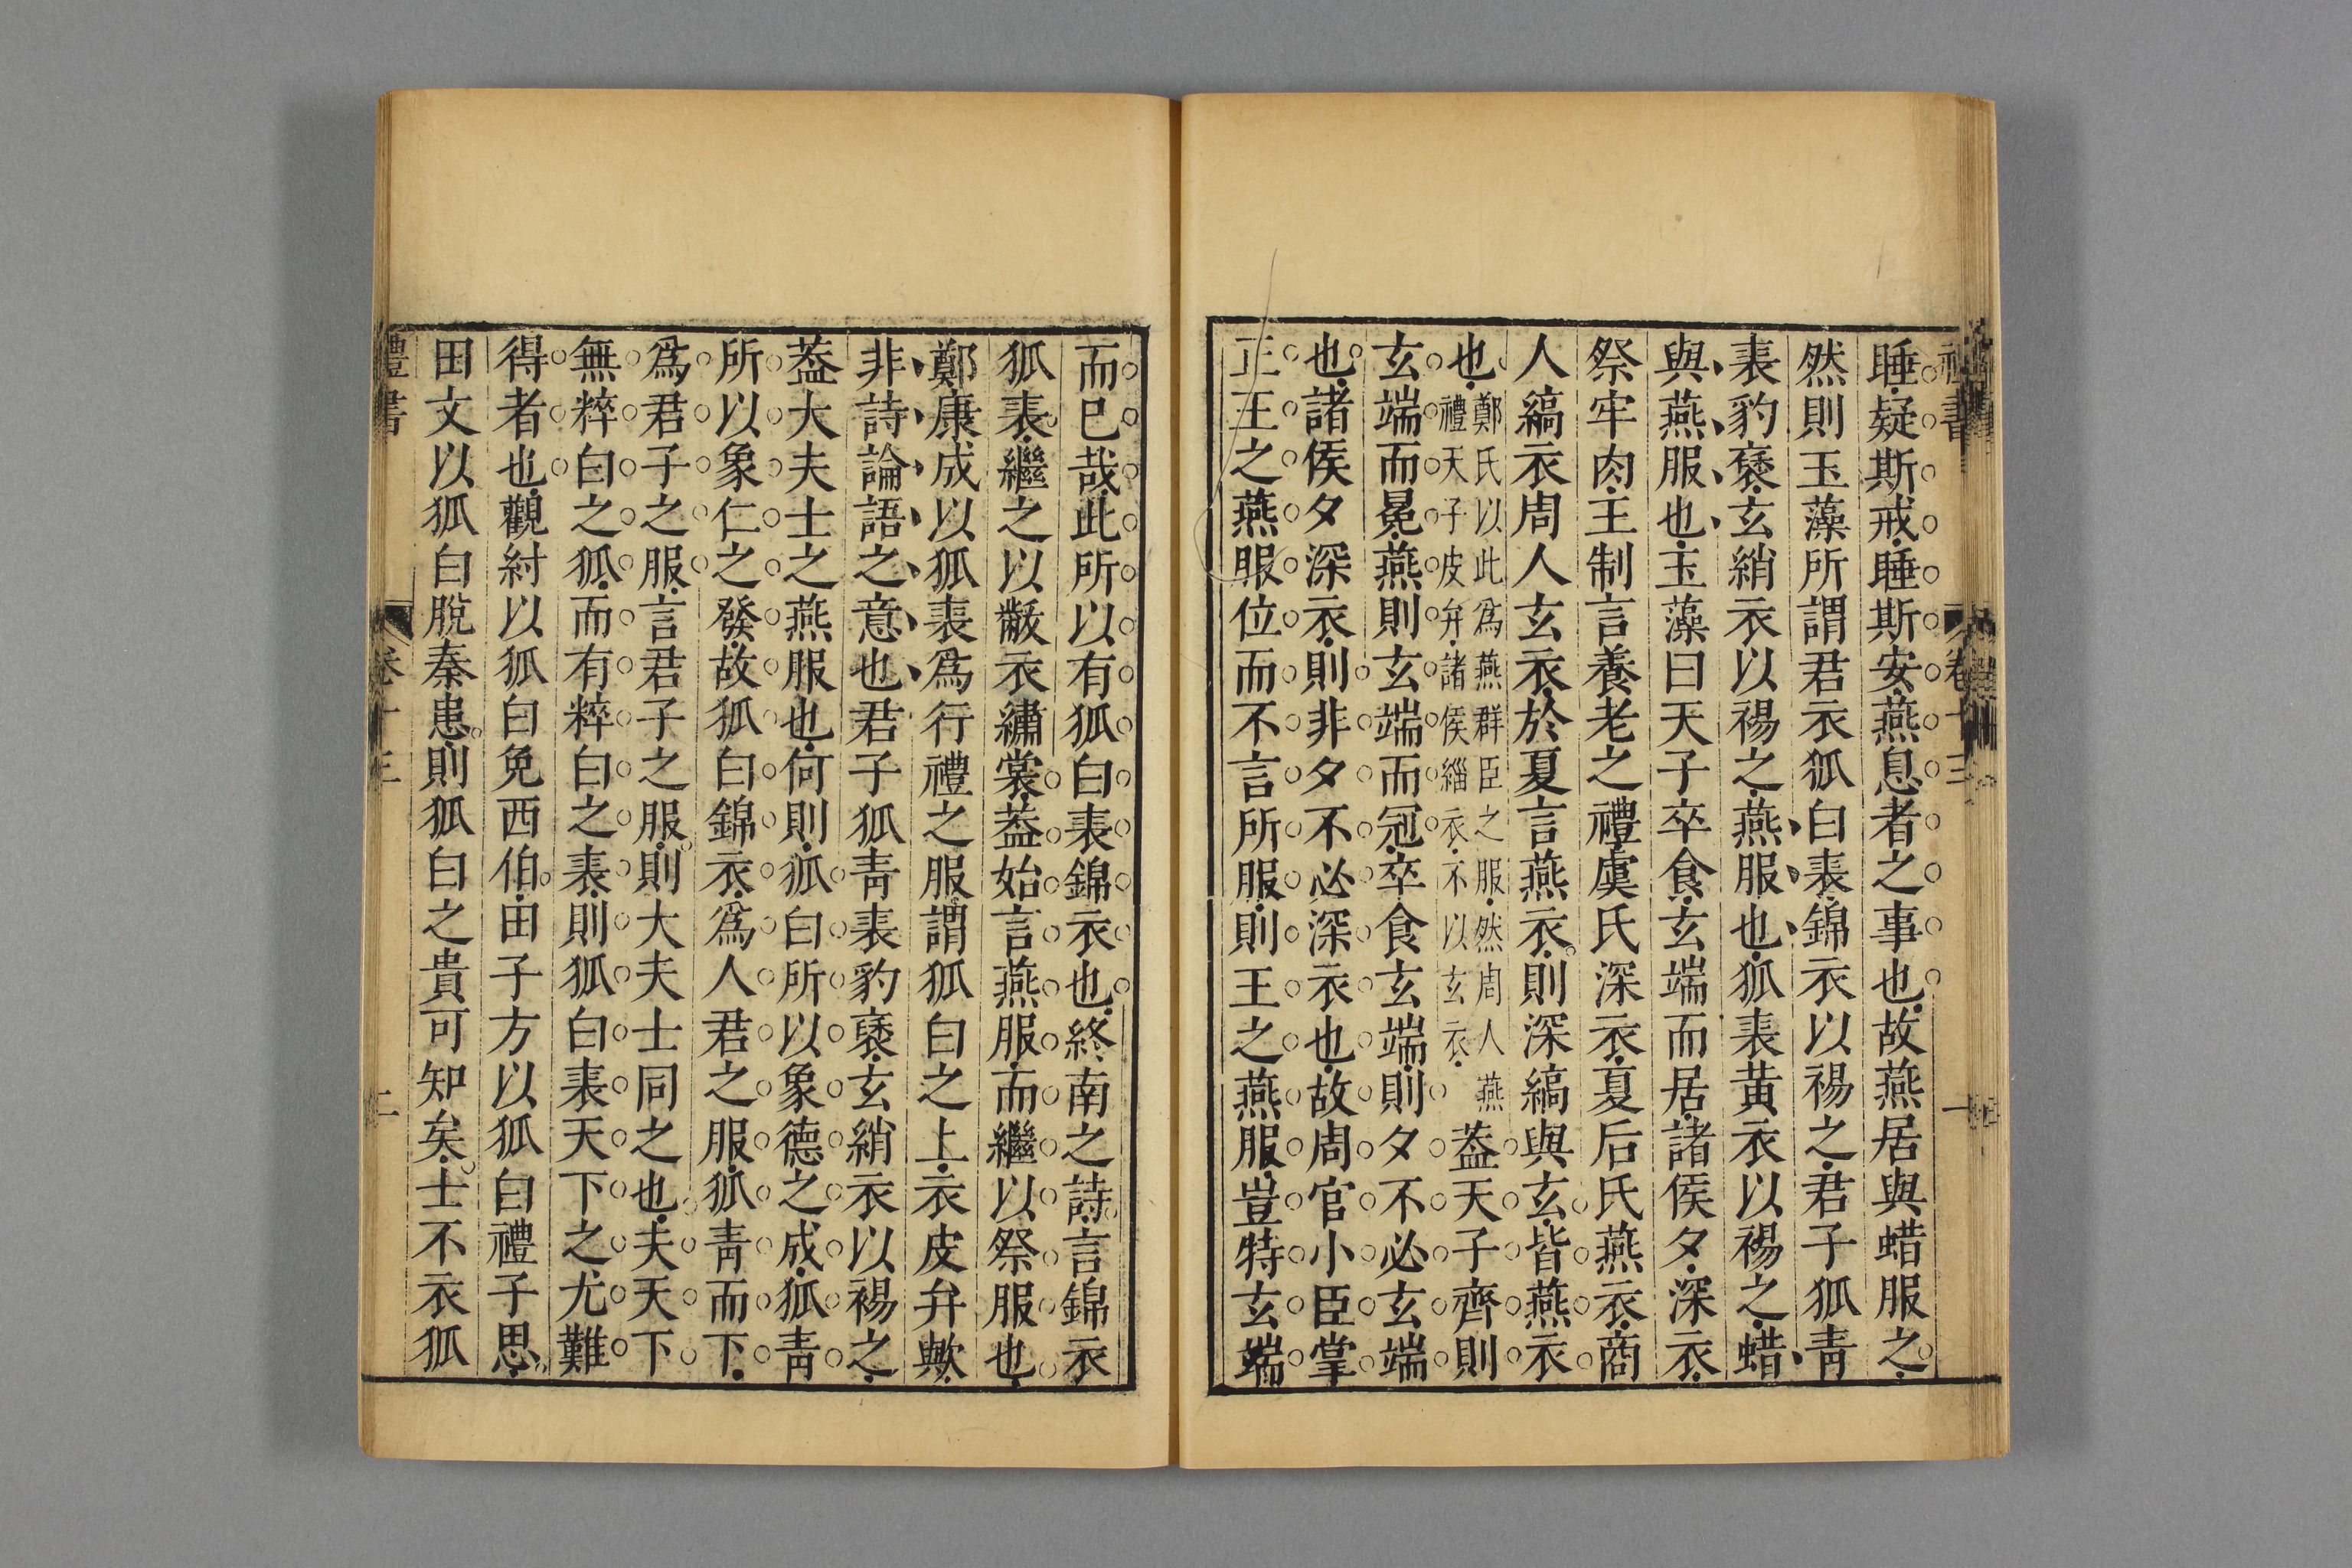 睡疑斯戒睡斯安燕息者之事也故燕居與蜡服之
然則玉藻所謂君衣狐白裘錦衣以裼之君子狐青
裘豹褎玄綃衣以裼之燕服也狐裘黃衣以裼之蜡
與燕服也玉藻曰天子卒食玄端而居諸侯夕深衣
祭牢肉王制言養老之禮虞氏深衣夏后氏燕衣商
人縞衣周人玄衣於夏言燕衣則深縞與玄皆燕衣
也鄭氏以此爲燕群臣之服然周人燕禮天子皮弁諸侯緇衣不以玄衣葢天子齊則
玄端而冕燕則玄端而冠卒食玄端則夕不必玄端
也諸侯夕深衣則非夕不必深衣也故周官小臣掌
正王之燕服位而不言所服則王之燕服豈特玄端
而已哉此所以有狐白裘錦衣也終南之詩言錦衣
狐裘繼之以黻衣繡裳葢始言燕服而繼以祭服也
鄭康成以狐裘爲行禮之服謂狐白之上衣皮弁歟
非詩論語之意也君子狐青裘豹褎玄綃衣以裼之
葢大夫士之燕服也何則狐白所以象德之成狐青
所以象仁之發故狐白錦衣爲人君之服狐青而下
爲君子之服言君子之服則大夫士同之也夫天下
無粹白之狐而有粹白之裘則狐白裘天下之尤難
得者也觀紂以狐白免西伯田子方以狐白禮子思
田文以狐白脫秦患則狐白之貴可知矣士不衣狐
禮書
卷十三
二